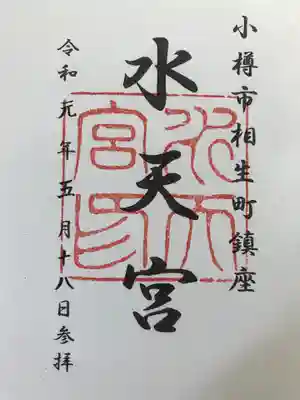 小樽市相生町鎮座
水天宮
水天宮印
令和元年五月十八日参拝